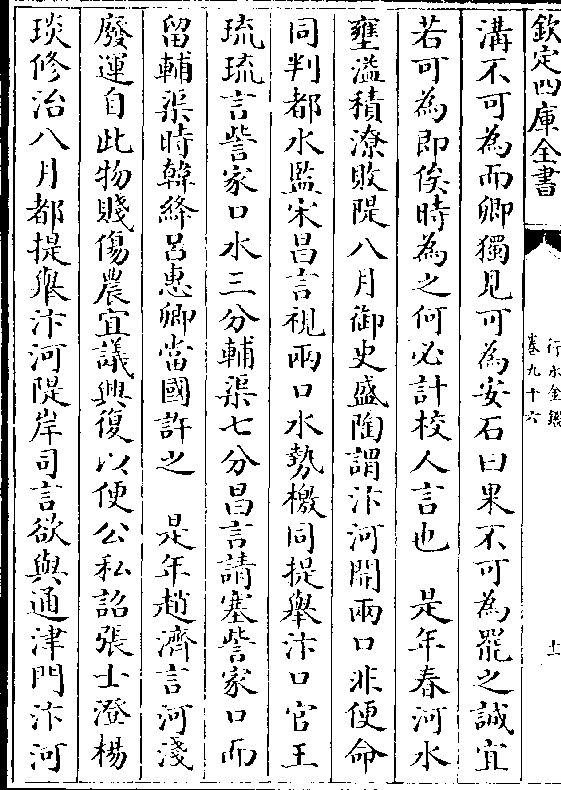 欽定四庫全書
行水金鑑
卷九十六
十一
溝不可為而卿獨見可為安石曰果不可為罷之誠宜
若可為即俟時為之何必計校人言也　是年春河水
壅溢積潦敗隄八月御史盛陶謂汴河開兩口非便命
同判都水監宋昌言視兩口水勢檄同提舉汴口官王
琉琉言訾家口水三分輔渠七分昌言請塞訾家口而
留輔渠時韓絳呂惠卿當國許之　是年趙濟言河淺
廢運自此物賤傷農宜議興復以便公私詔張士澄楊
琰修治八月都提舉汴河隄岸司言欲與通津門汴河